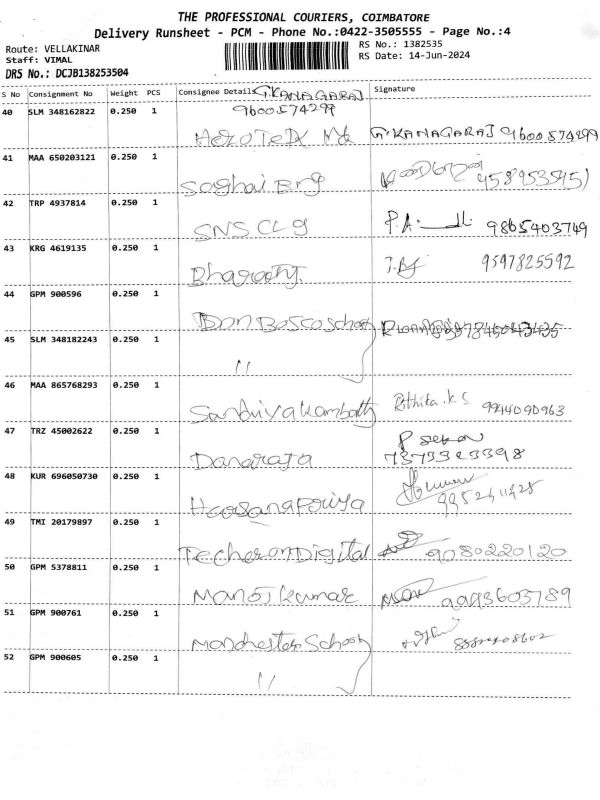 THE PROFESSIONAL COURIERS, COIMBATORE
Delivery Runsheet - PCM - Phone No.:0422-3505555 - Page No.:4
Route: VELLAKINAR RS No.: 1382535
Staff: VIMAL RS Date: 14-Jun-2024
DRS No.: DCJB138253504
S No Consignment No Weight PCS Consignee Details G.KANAGARAJ Signature
40 SLM 348162822 0.250 1 9600574299
G.KANAGARAJ 9600574299
41 MAA 650203121 0.250 1
42 TRP 4937814 0.250 1
SNS CLG P.A. 9865403749
43 KRG 4619135 0.250 1
Bharathy 9597825592
44 GPM 900596 0.250 1
Don Bosco School
45 SLM 348182243 0.250 1
"
46 MAA 865768293 0.250 1
Rithika.K.S 9944090963
47 TRZ 45002622 0.250 1
Danaraja 7373323398
48 KUR 696050730 0.250 1
49 TMI 20179897 0.250 1
Digital 9080220120
50 GPM 5378811 0.250 1
Manoj kumar
51 GPM 900761 0.250 1
Manchester School
52 GPM 900605 0.250 1
"